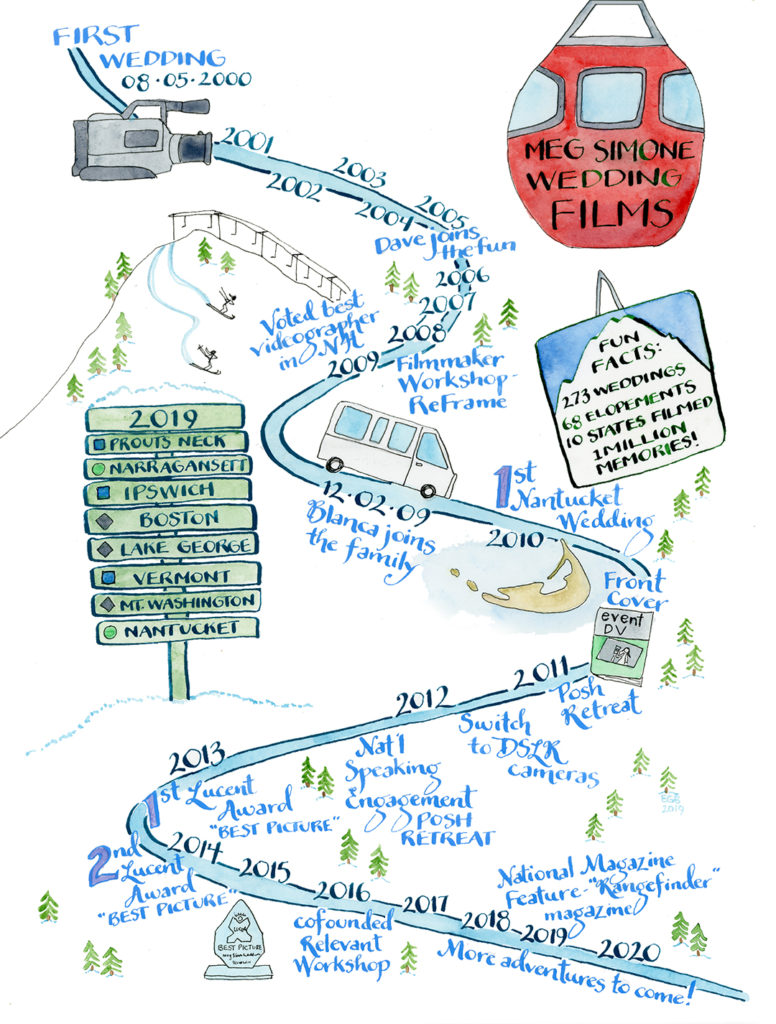 FIRST
WEDDING
08·05·2000
MEG SIMONE
WEDDING
FILMS
2001
2002
2003
2004
2005
Dave joins
the fun
2006
2007
2008
2009
Voted best
videographer
in NH
Filmmaker
Workshop-
ReFrame
FUN
FACTS:
273 WEDDINGS
68 ELOPEMENTS
10 STATES FILMED
1 MILLION
MEMORIES!
2019
PROUTS NECK
NARRAGANSETT
IPSWICH
BOSTON
LAKE GEORGE
VERMONT
MT. WASHINGTON
NANTUCKET
12·02·09
Blanca joins
the family
1st
Nantucket
Wedding
2010
Front
Cover
event
DV
2011
Posh
Retreat
2012
Switch
to DSLR
cameras
Nat'l
Speaking
Engagement
POSH
RETREAT
2013
1st Lucent
Award
"BEST PICTURE"
EGB
2019
2nd
Lucent
Award
"BEST PICTURE"
2014
2015
2016
2017
2018
2019
2020
BEST PICTURE
cofounded
Relevant
Workshop
National Magazine
Feature-"Rangefinder"
magazine
More adventures to come!